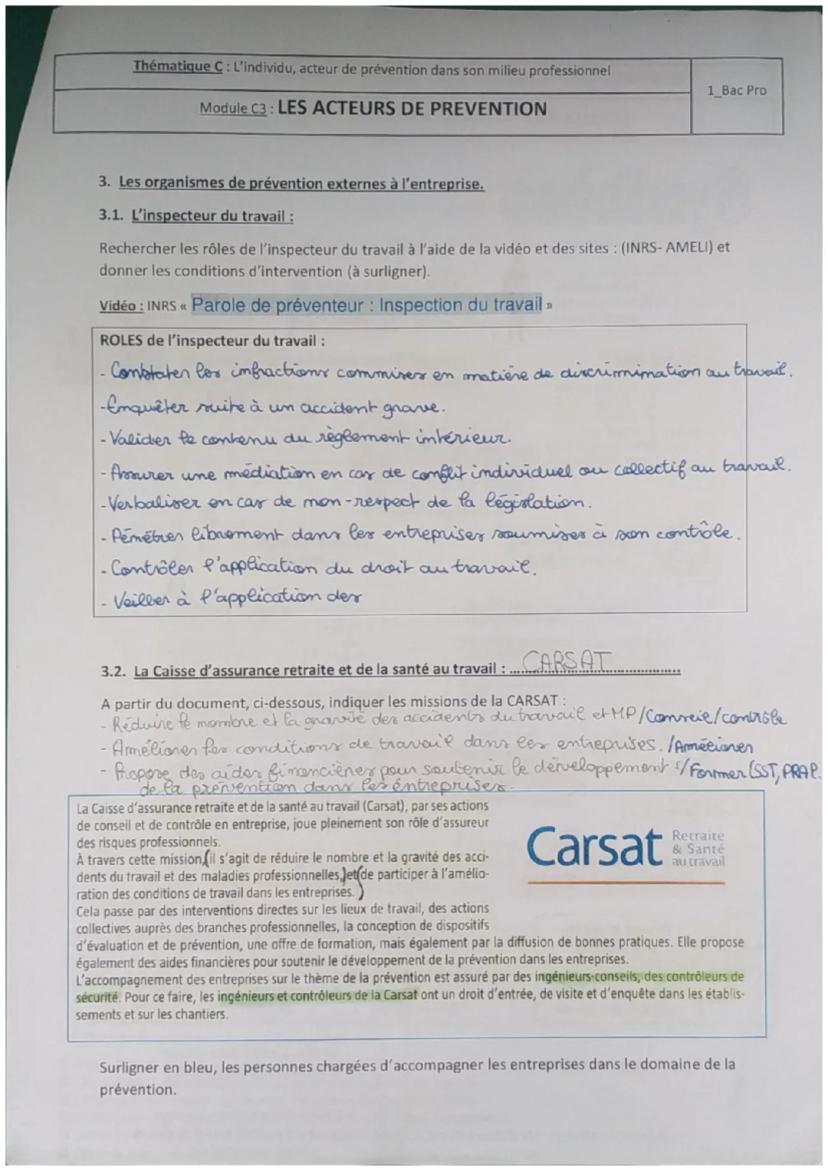 Thématique C : L'individu, acteur de prévention dans son milieu professionnel
1_Bac Pro
Module C3 : LES ACTEURS DE PREVENTION
3. Les organismes de prévention externes à l'entreprise.
3.1. L'inspecteur du travail :
Rechercher les rôles de l'inspecteur du travail à l'aide de la vidéo et des sites : (INRS- AMELI) et
donner les conditions d'intervention (à surligner).
Vidéo : INRS « Parole de préventeur : Inspection du travail »
ROLES de l'inspecteur du travail :
- Constater les infractions commises en matière de discrimination au travail.
- Enquêter suite à un accident grave.
- Valider le contenu du règlement intérieur.
- Assurer une médiation en cas de conflit individuel ou collectif au travail.
- Verbaliser en cas de non-respect de la législation.
- Pénétrer librement dans les entreprises soumises à son contrôle.
- Contrôler l'application du droit au travail.
- Veiller à l'application des
3.2. La Caisse d'assurance retraite et de la santé au travail : ....CARSAT....
A partir du document, ci-dessous, indiquer les missions de la CARSAT :
- Réduire le nombre et la gravité des accidents du travail et MP/Conseil/contrôle
- Améliorer les conditions de travail dans les entreprises. /Améliorer
- Propose des aides financières pour soutenir le développement /Former (SST, PRAP.
de la prévention dans les entreprises.
La Caisse d'assurance retraite et de la santé au travail (Carsat), par ses actions
de conseil et de contrôle en entreprise, joue pleinement son rôle d'assureur
des risques professionnels.
À travers cette mission, (il s'agit de réduire le nombre et la gravité des acci-
dents du travail et des maladies professionnelles,) et (de participer à l'amélio-
ration des conditions de travail dans les entreprises.)
Cela passe par des interventions directes sur les lieux de travail, des actions
collectives auprès des branches professionnelles, la conception de dispositifs
d'évaluation et de prévention, une offre de formation, mais également par la diffusion de bonnes pratiques. Elle propose
également des aides financières pour soutenir le développement de la prévention dans les entreprises.
L'accompagnement des entreprises sur le thème de la prévention est assuré par des ingénieurs-conseils, des contrôleurs de
sécurité. Pour ce faire, les ingénieurs et contrôleurs de la Carsat ont un droit d'entrée, de visite et d'enquête dans les établis-
sements et sur les chantiers.
Carsat
Retraite
& Santé
au travail
Surligner en bleu, les personnes chargées d'accompagner les entreprises dans le domaine de la
prévention.